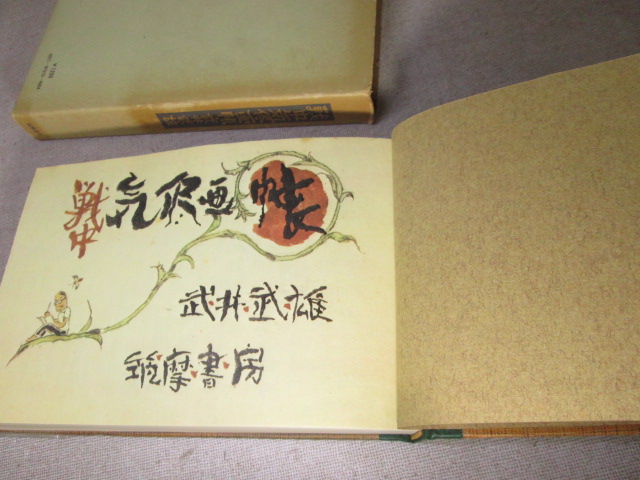 戦中気侭画帳
武井武雄
筑摩書房